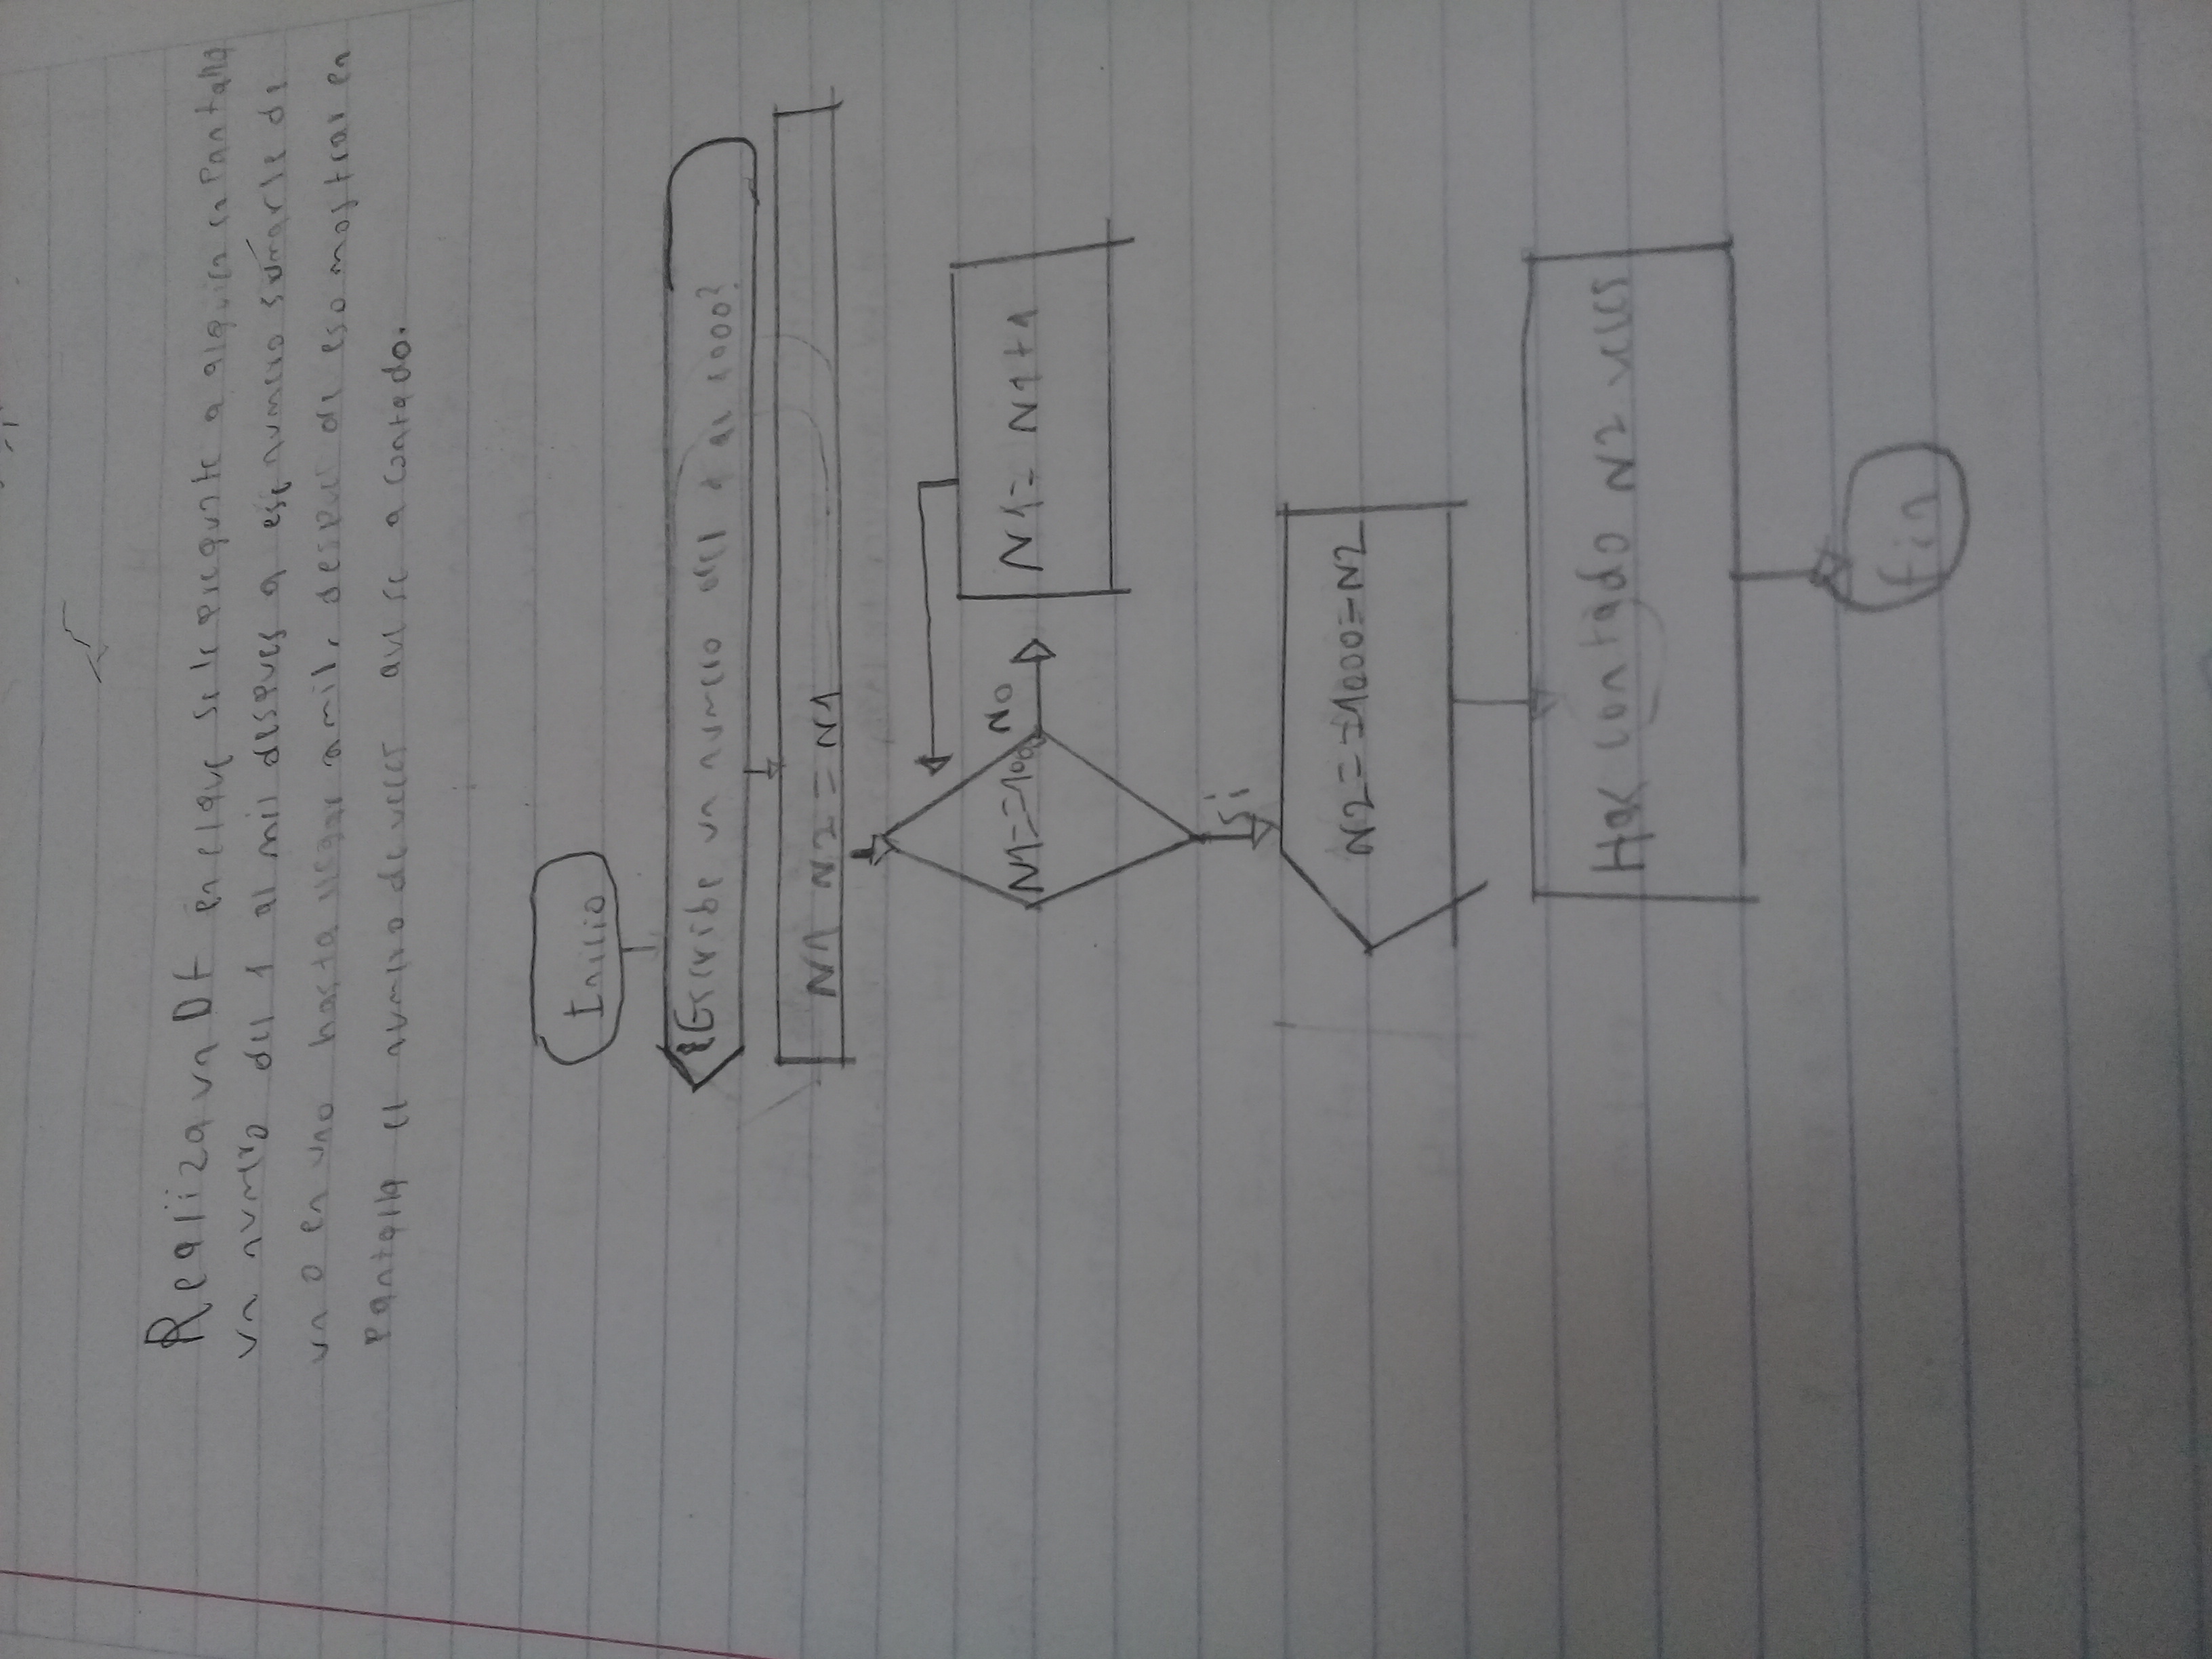 Realiza un DF en el que se le pregunte a alguien en Pantalla
un numero del 1 al mil despues a ese numero sumarle de
un o en uno hasta llegar a mil, despues de eso mostrar en
Pantalla el numero de veces que se a contado.
Inicio
¿Escribe un numero del 1 al 1000?
N1 N2 = N1
N1==100
No
N1= N1+1
Si
N2==1000-N2
Has contado N2 veces
fin